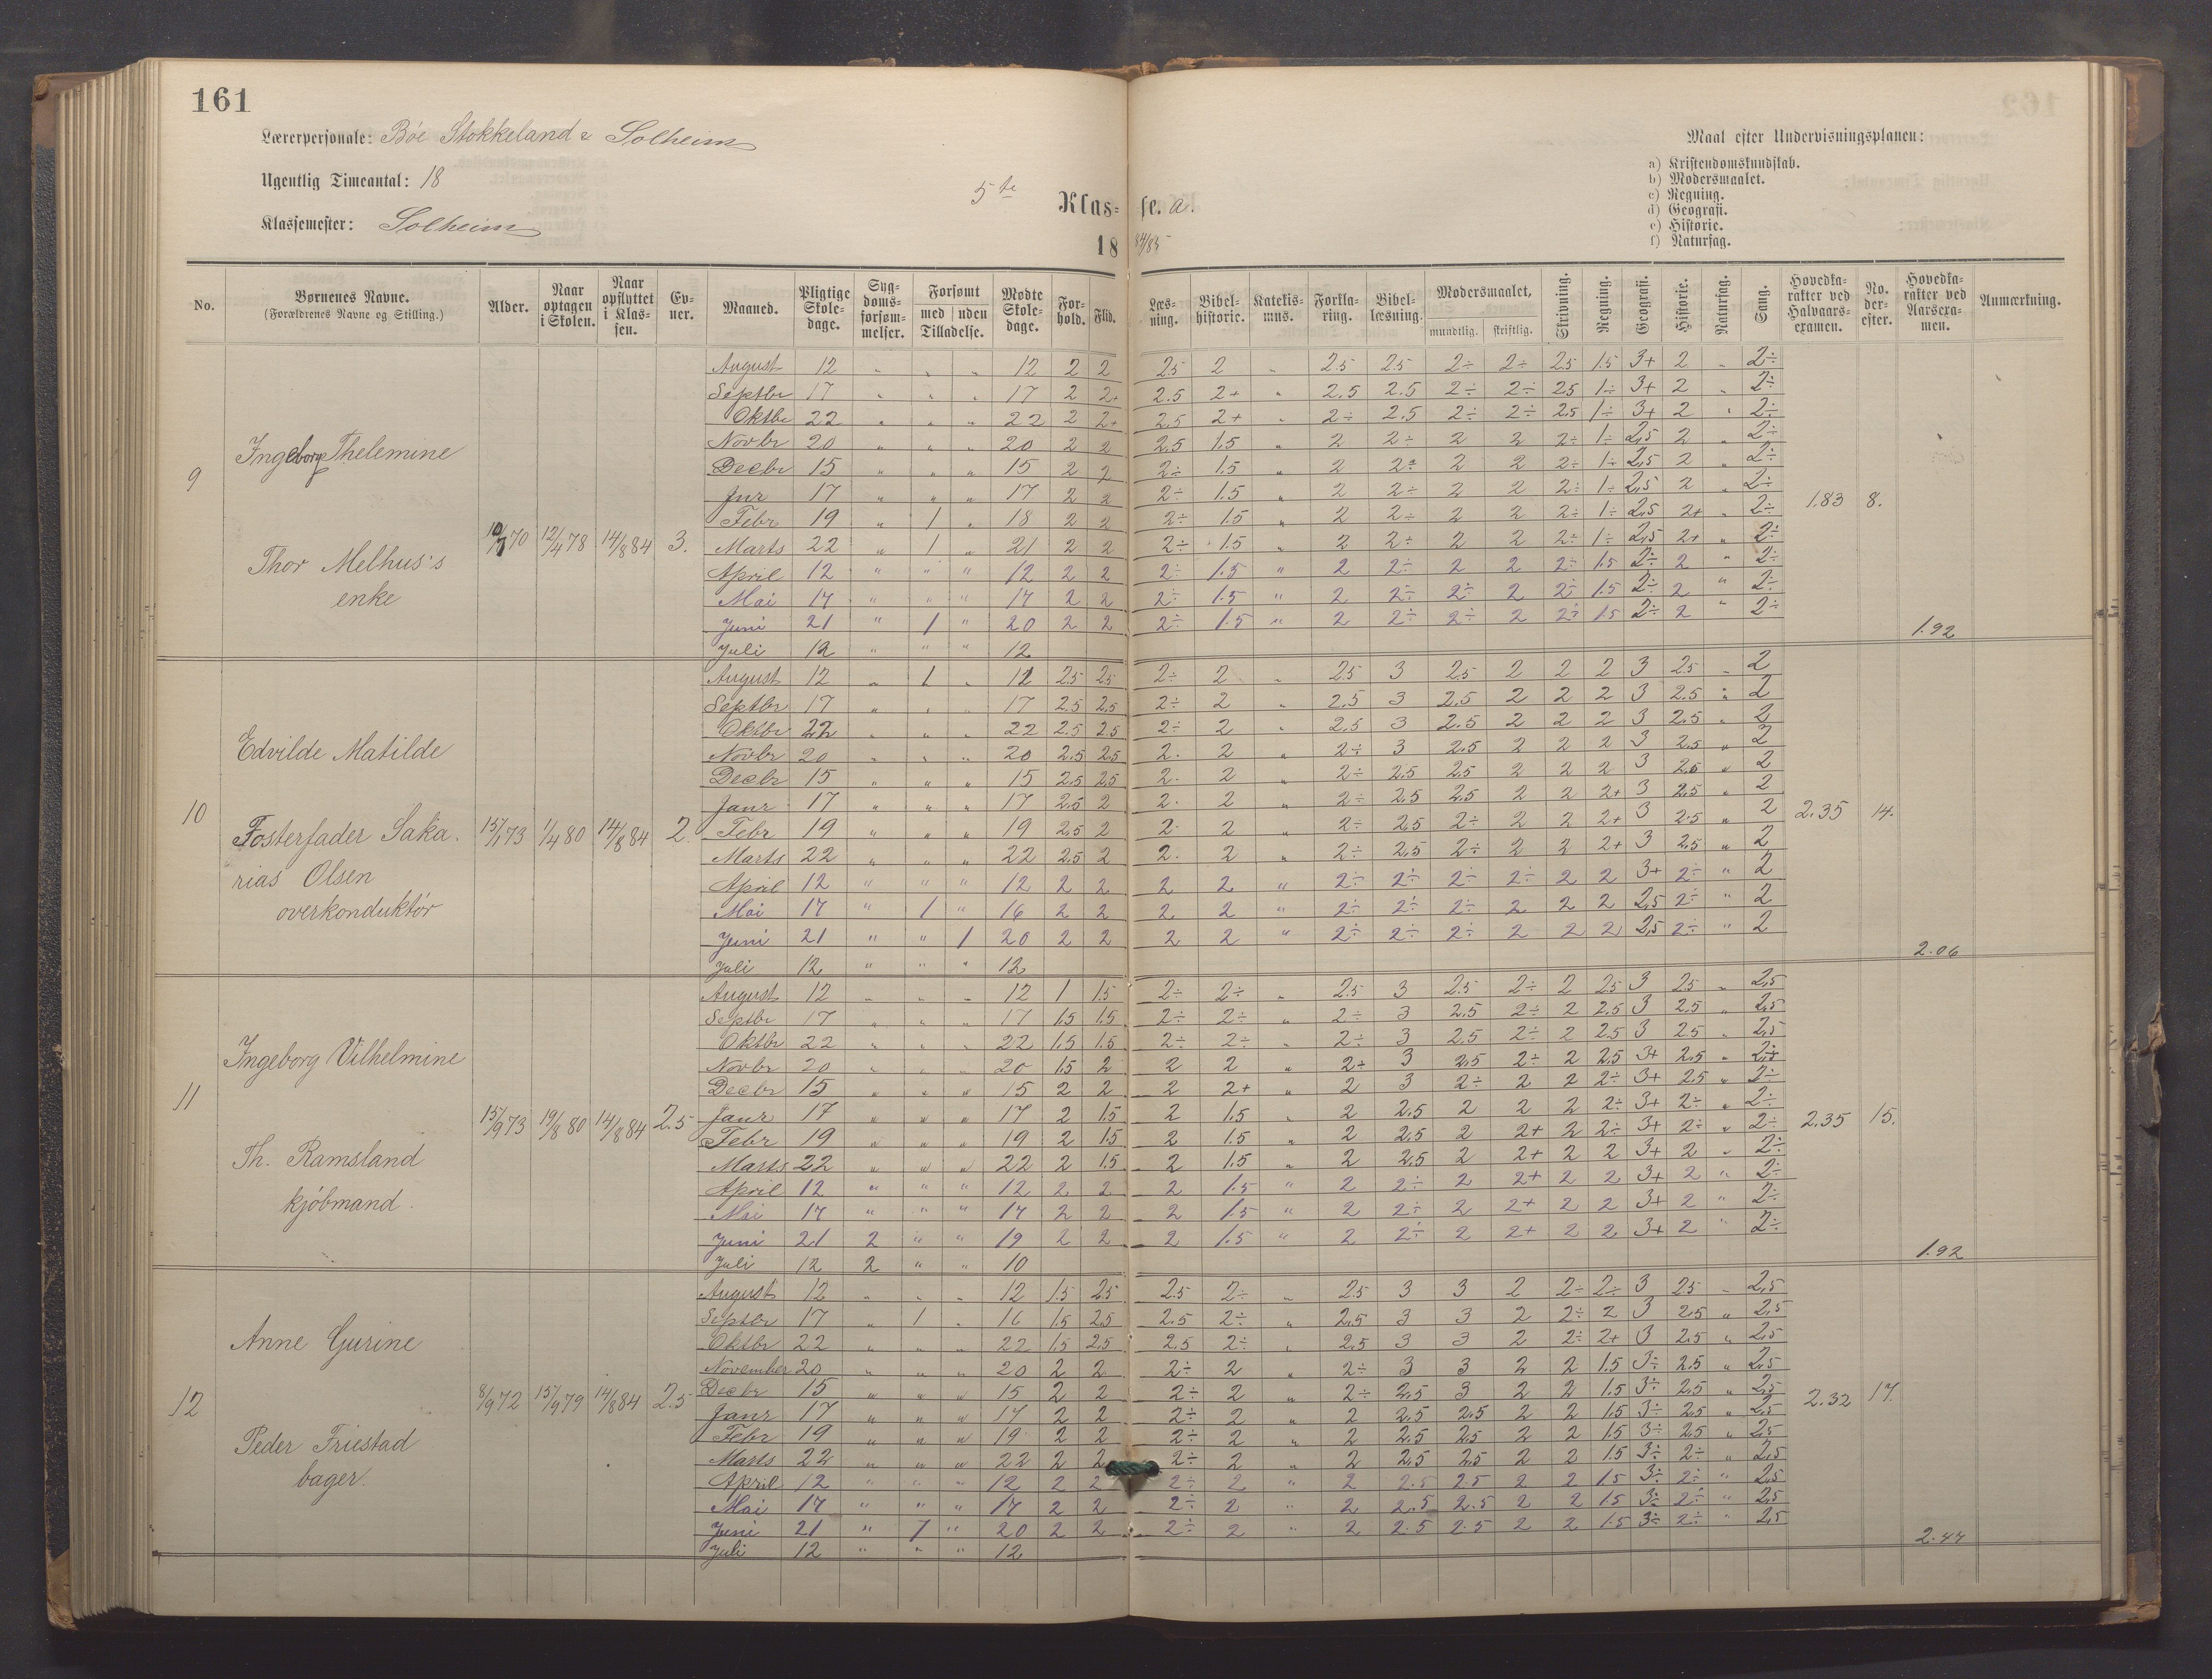 161
Lærerpersonale: Bóe Stokkeland & Solheim
Ugentlig Timeantal: 18
Klassemester: Solheim
5te Klasse. a.
18 84/85
Maal efter Undervisningsplanen:
a) Kristendomskundskab.
b) Modersmaalet.
c) Regning.
d) Geografi.
e) Historie.
f) Naturfag.
No. Børnenes Navne. (Forældrenes Navne og Stilling.) Alder. Naar optagen i Skolen. Naar opflyttet i Klassen. Evner. Maaned. Pligtige Skoledage. Sygdomsforsømmelser. Forsømt med uden Tilladelse. Mødte Skoledage. Forhold. Flid. Læsning. Bibelhistorie. Katekismus. Forklaring. Bibellæsning. Modersmaalet, mundtlig. skriftlig. Skrivning. Regning. Geografi. Historie. Naturfag. Sang. Hovedkarakter ved Halvaarsexamen. No. derefter. Hovedkarakter ved Aarsexamen. Anmærkning.
9 Ingeborg Thelemine
Thor Melhus's
enke
10/7 70 12/4 78 14/8 84 3.
August 12 " " " 12 2 2 2.5 2 " 2.5 2.5 2÷ 2÷ 2.5 1.5 3+ 2 " 2÷
Septbr 17 " " " 17 2 2+ 2.5 2+ " 2.5 2.5 2÷ 2÷ 2.5 1÷ 3+ 2 " 2÷
Oktbr 22 " " " 22 2 2+ 2.5 2+ " 2÷ 2.5 2÷ 2÷ 2.5 1÷ 3+ 2 " 2÷
Novbr 20 " " " 20 2 2 2.5 1.5 " 2 2÷ 2 2 2÷ 1÷ 2.5 2 " 2÷
Decbr 15 " " " 15 2 2 2÷ 1.5 " 2 2÷ 2 2 2÷ 1÷ 2.5 2 " 2÷
Jnr 17 " " " 17 2 2 2÷ 1.5 " 2 2÷ 2 2 2÷ 1÷ 2.5 2 " 2÷
1.83 8.
Febr 19 " 1 " 18 2 2 2÷ 1.5 " 2 2÷ 2 2 2÷ 1÷ 2.5 2+ " 2÷
Marts 22 " 1 " 21 2 2 2÷ 1.5 " 2 2÷ 2 2 2÷ 1÷ 2.5 2+ " 2÷
April 12 " " " 12 2 2 2÷ 1.5 " 2 2÷ 2 2 2÷ 1.5 2÷ 2 " 2÷
Mai 17 " " " 17 2 2 2÷ 1.5 " 2 2÷ 2÷ 2 2÷ 1.5 2÷ 2 " 2÷
Juni 21 " 1 " 20 2 2 2÷ 1.5 " 2 2÷ 2÷ 2 2÷ 1.5 2÷ 2 " 2÷
1.92
Juli 12 " " " 12
10 Edvilde Matilde
Fosterfader Saka.
rias Olsen
overkonduktör
15/1 73 1/4 80 14/8 84 2.
August 12 " 1 " 11 2.5 2.5 2÷ 2 " 2.5 3 2.5 2 2 2 3 2.5 " 2
Septbr 17 " " " 17 2.5 2.5 2÷ 2 " 2.5 3 2.5 2 2 2 3 2.5 " 2
Oktbr 22 " " " 22 2.5 2.5 2÷ 2 " 2.5 3 2.5 2 2 2 3 2.5 " 2
Novbr 20 " " " 20 2.5 2.5 2. 2 " 2÷ 3 2.5 2 2 2 3 2.5 " 2
Decbr 15 " " " 15 2.5 2.5 2. 2 " 2÷ 2.5 2.5 2 2 2 3 2.5 " 2
Janr 17 " " " 17 2.5 2 2. 2 " 2÷ 2.5 2.5 2 2 2+ 3 2.5 " 2
2.35 14.
Febr 19 " " " 19 2.5 2 2. 2 " 2÷ 2.5 2÷ 2 2 2+ 3 2.5 " 2
Marts 22 " " " 22 2.5 2 2. 2 " 2÷ 2.5 2÷ 2 2 2+ 3 2.5 " 2
April 12 " " " 12 2 2 2 2 " 2÷ 2÷ 2÷ 2÷ 2 2 3+ 2÷ " 2
Mai 17 " 1 " 16 2 2 2 2 " 2÷ 2÷ 2÷ 2 2 2 2.5 2÷ " 2
Juni 21 " " 1 20 2 2 2 2 " 2÷ 2÷ 2÷ 2 2 2 2.5 2÷ " 2
2.06
Juli 12 " " " 12
11 Ingeborg Vilhelmine
Th. Ramsland
kjöbmand.
15/9 73 19/8 80 14/8 84 2.5
August 12 " " " 12 1 1.5 2÷ 2÷ " 2.5 3 2.5 2÷ 2 2.5 3 2.5 " 2.5
Septbr 17 " " " 17 1.5 1.5 2÷ 2÷ " 2÷ 3 2.5 2÷ 2 2.5 3 2.5 " 2.5
Oktbr 22 " " " 22 1.5 1.5 2÷ 2÷ " 2÷ 3 2.5 2÷ 2 2.5 3 2.5 " 2.5
Novbr 20 " " " 20 1.5 2 2 2 " 2÷ 3 2.5 2÷ 2 2.5 3+ 2.5 " 2÷
Decbr 15 " " " 15 2 2 2 2+ " 2 3 2÷ 2 2 2÷ 3+ 2.5 " 2÷
Janr 17 " " " 17 2 1.5 2 1.5 " 2 2.5 2 2 2 2÷ 3+ 2÷ " 2÷
2.35 15.
Febr 19 " " " 19 2 1.5 2 1.5 " 2 2.5 2 2+ 2 2÷ 3+ 2÷ " 2÷
Marts 22 " " " 22 2 1.5 2 1.5 " 2 2.5 2 2+ 2 2 3+ 2 " 2÷
April 12 " " " 12 2 2 2 1.5 " 2 2÷ 2 2+ 2 2 3+ 2 " 2÷
Mai 17 " " " 17 2 2 2 1.5 " 2 2÷ 2 2+ 2 2 3+ 2 " 2÷
Juni 21 2 " " 19 2 2 2 1.5 " 2 2÷ 2 2+ 2 2 3+ 2 " 2÷
1.92
Juli 12 2 " " 10
12 Anne Gurine
Peder Friestad
bager.
8/9 72 15/9 79 14/8 84 2.5
August 12 " " " 12 1.5 2.5 2.5 2÷ " 2.5 3 3 2 2÷ 2÷ 3 2.5 " 2.5
Septbr 17 " 1 " 16 1.5 2.5 2.5 2÷ " 2.5 3 3 2 2÷ 2 3 2.5 " 2.5
Oktbr 22 " " " 22 1.5 2.5 2.5 2÷ " 2.5 3 3 2 2÷ 2+ 3 2.5 " 2.5
November 20 " " " 20 2 2 2÷ 2 " 2÷ 3 3 2 2 1.5 3÷ 2.5 " 2.5
Decbr 15 " " " 15 2 2 2÷ 2 " 2÷ 2.5 3 2 2 1.5 3÷ 2.5 " 2.5
2.32 17.
Janr 17 " " " 17 2 2 2÷ 2 " 2 2.5 2.5 2 2 1.5 3÷ 2.5 " 2.5
Febr 19 " " " 19 2 2 2÷ 2 " 2 2.5 2.5 2 2 1.5 3÷ 2.5 " 2.5
Marts 22 " " " 22 2 2 2÷ 2 " 2 2.5 2.5 2 2 1.5 3÷ 2÷ " 2.5
April 12 " " " 12 2 2 2÷ 2 " 2 2.5 2.5 2 2 1.5 3÷ 2÷ " 2.5
Mai 17 " " " 17 2 2 2÷ 2 " 2 2.5 2.5 2 2 1.5 3÷ 2÷ " 2.5
Juni 21 " 1 " 20 2 2 2÷ 2 " 2 2.5 2.5 2 2 1.5 3÷ 2÷ " 2.5
2.44
Juli 12 " " " 12